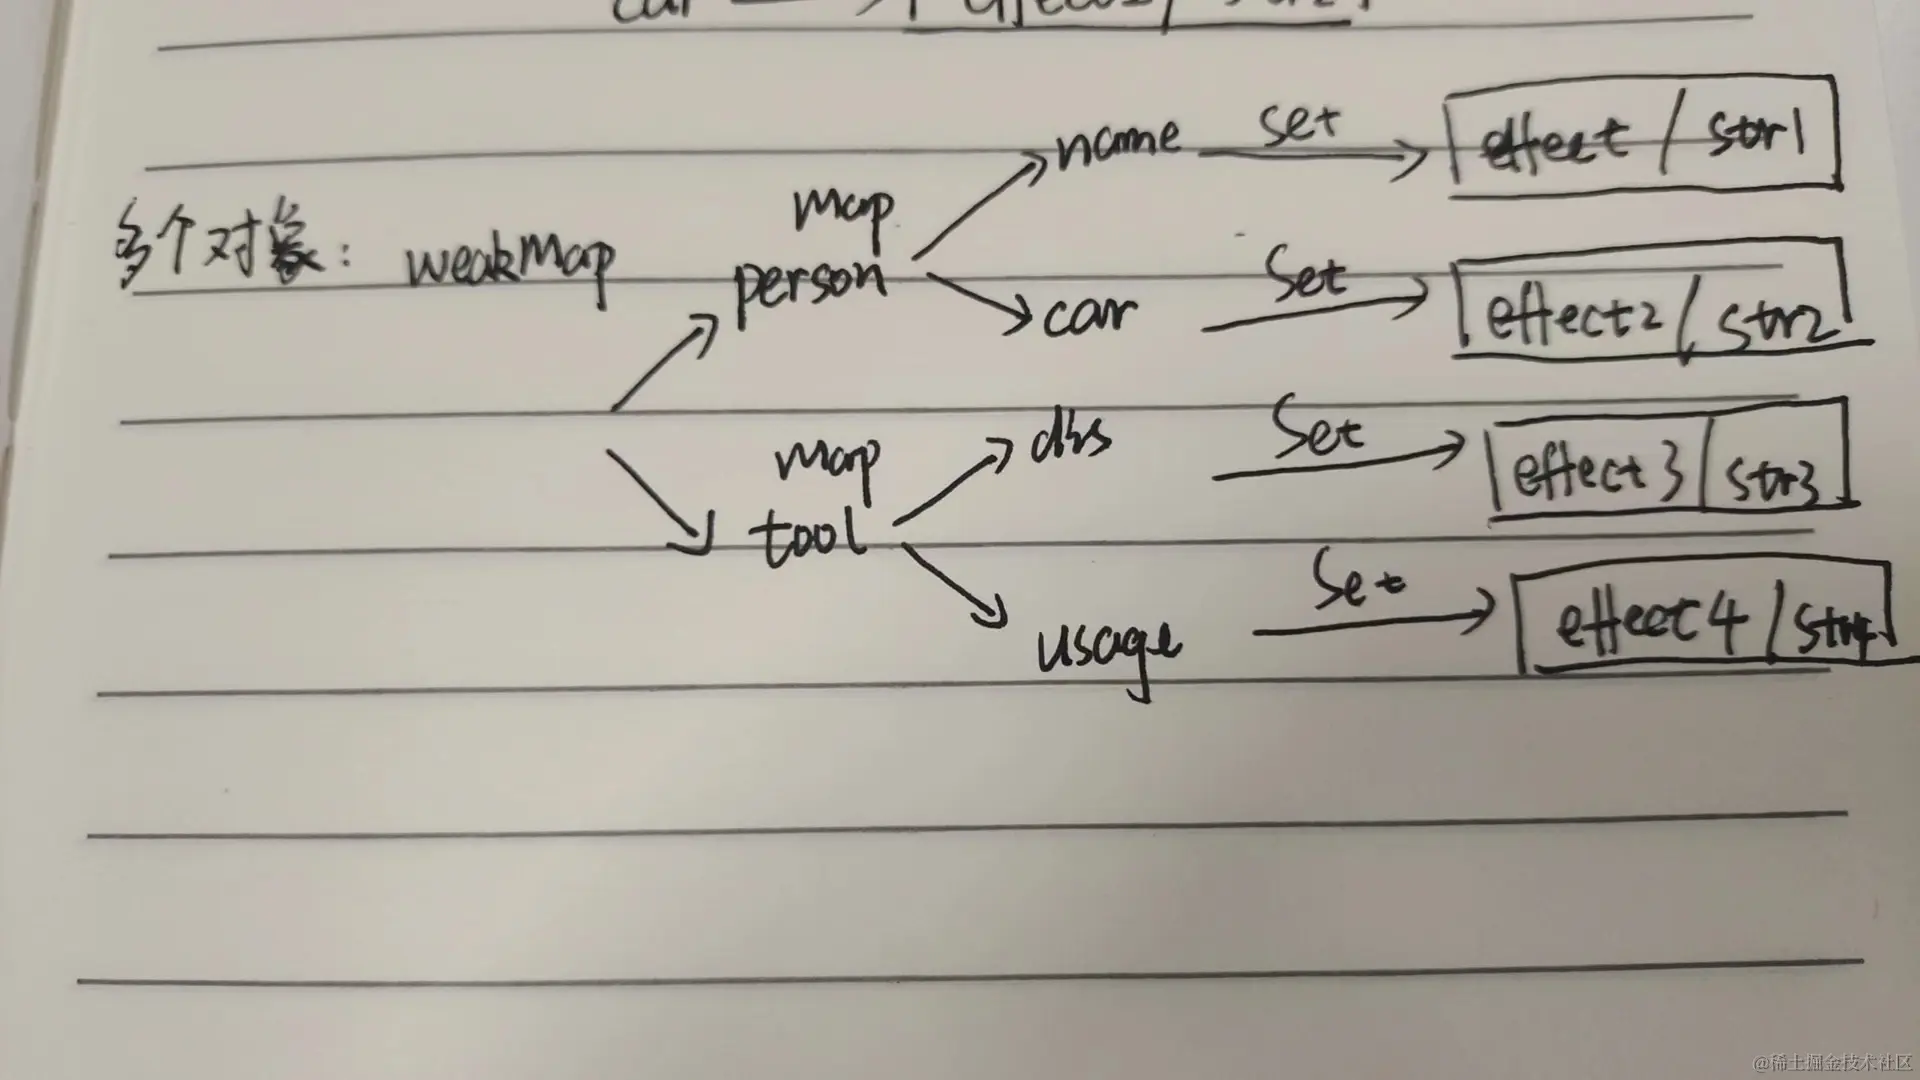 name set effect / str1
map
多个对象: weakMap person
car Set effect2 / str2
map Set effect3 / str3
tool
usage Set effect4 / str4
@稀土掘金技术社区